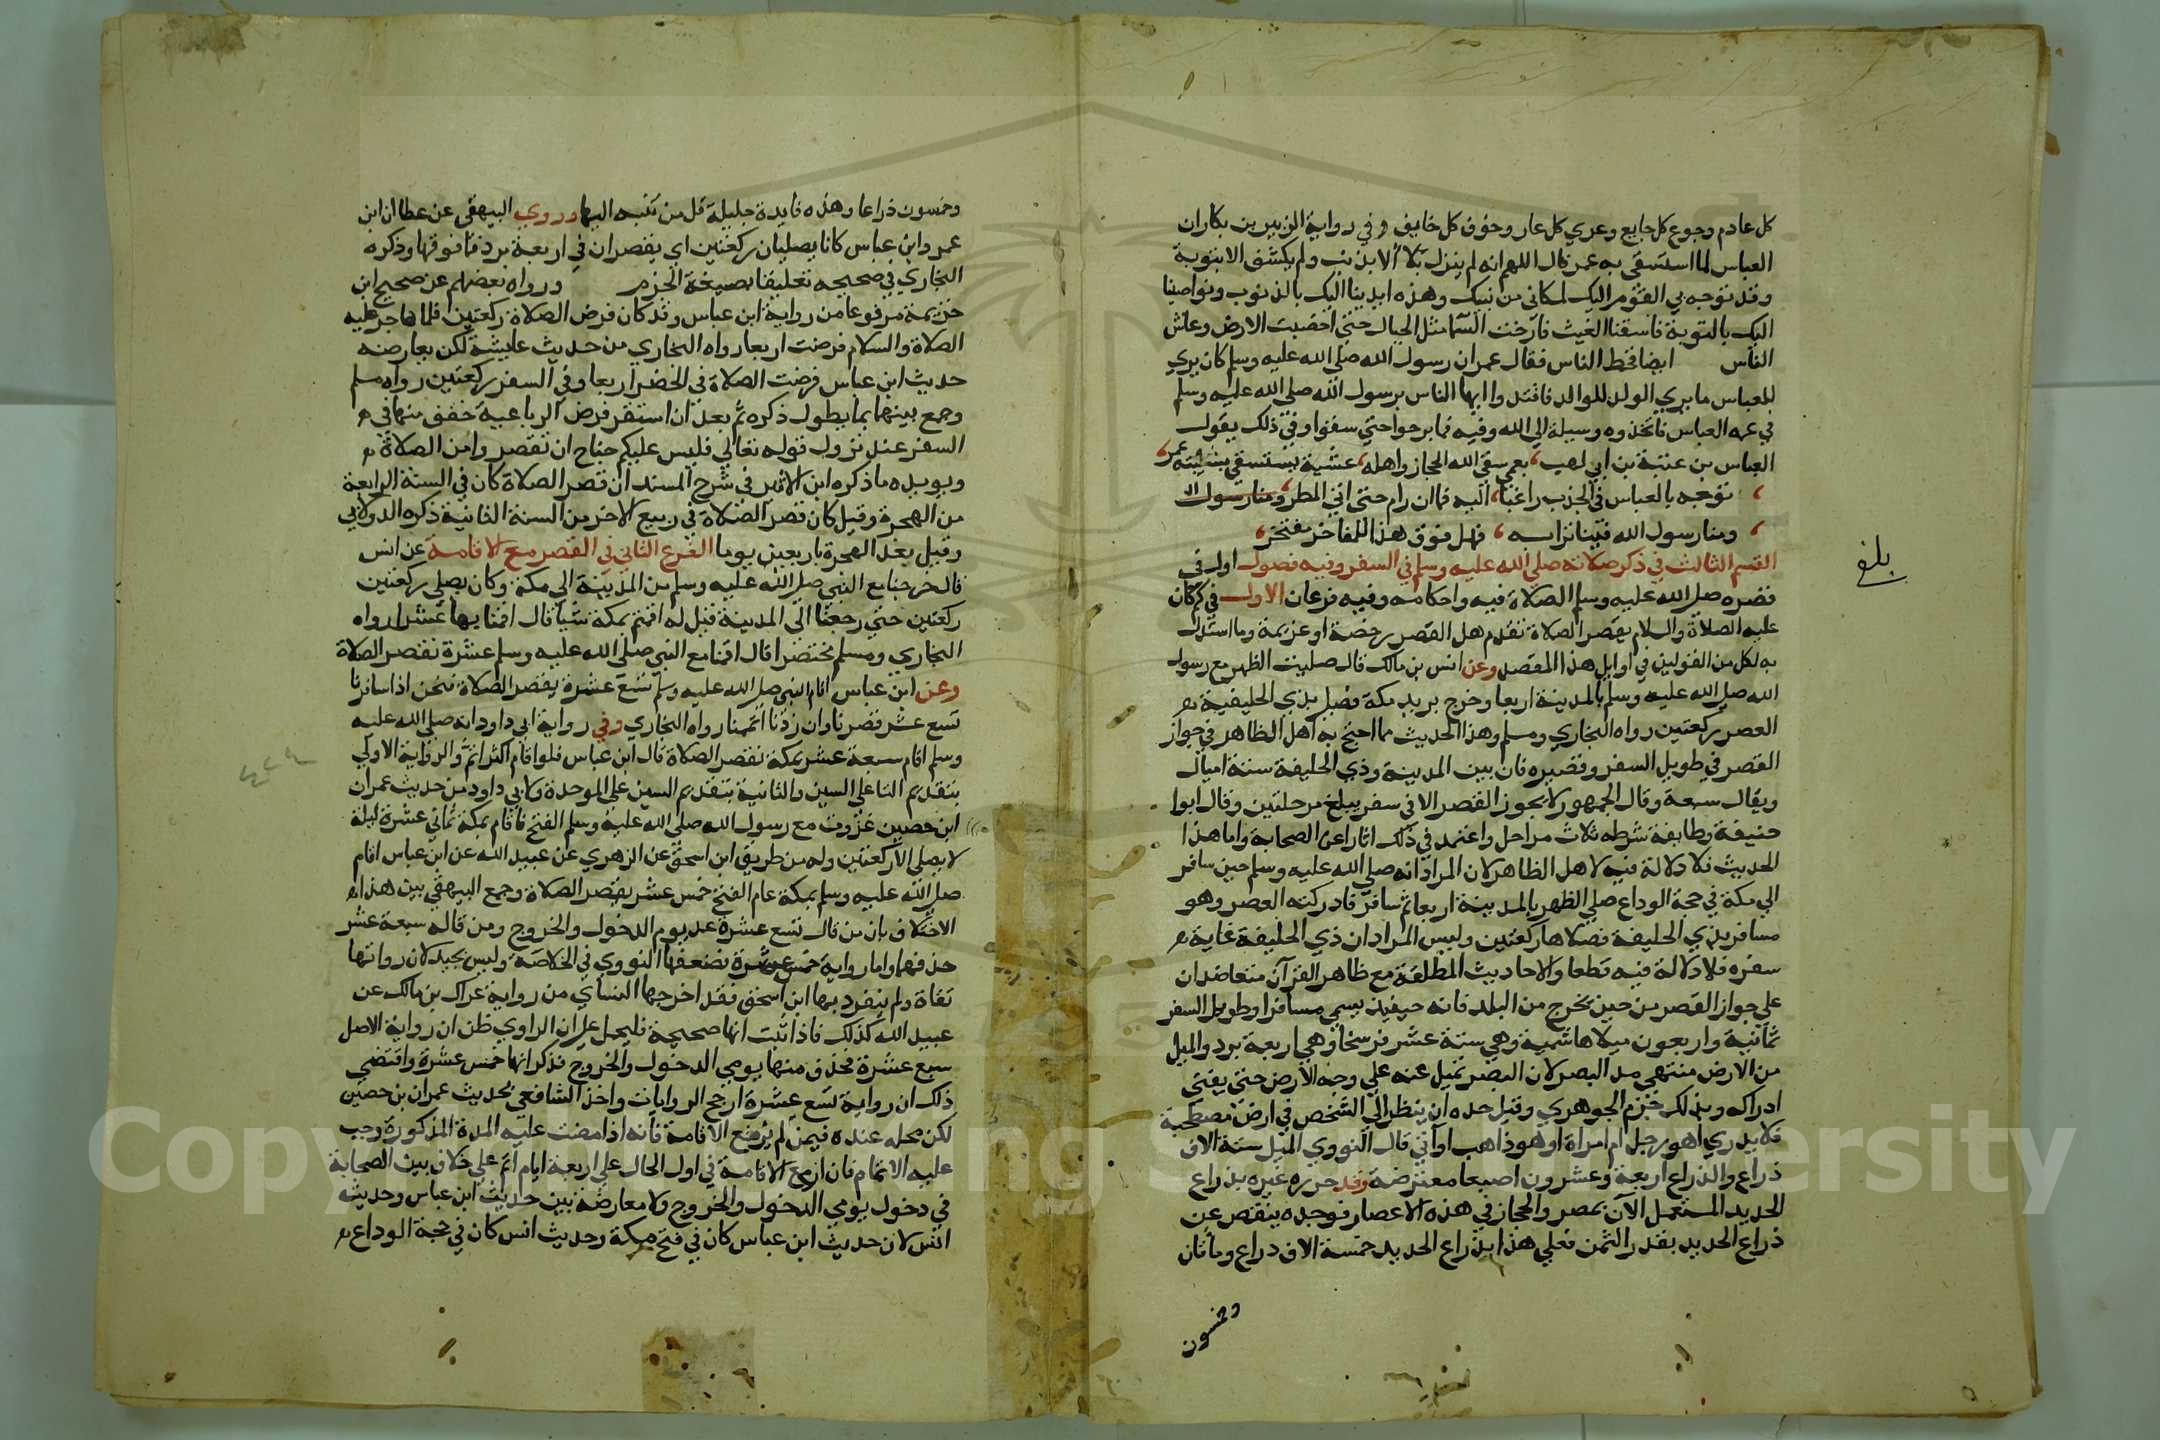 كل عادم وجوع كل جايع وعري كل عار وخوف كل خايف وفي رواية الزبير بن بكار ان
العباس لما استسقى به عمر قال اللهم انه لم ينزل بلاء الا بذنب ولم يكشف الا بتوبة
وقد توجه بي القوم اليك لمكاني من نبيك وهذه ايدينا اليك بالذنوب ونواصينا
اليك بالتوبة فاسقنا الغيث فارخت السما مثل الجبال حتى اخصبت الارض وعاش
الناس ايضا فخطب الناس فقال عمر ان رسول الله صلى الله عليه وسلم كان يري
للعباس ما يري الولد للوالد فاقتدوا ايها الناس برسول الله صلى الله عليه وسلم
في عمه العباس فاتخذوه وسيلة الي الله وفيه فما برحوا حتى سقوا وفي ذلك يقول
العباس بن عتبة بن ابي لهب بعمي سقى الله الحجاز واهله عشية يستسقي بشيبته عمر
توجه بالعباس في الجدب راغبا اليه فما ان رام حتى اتي المطر ومنا رسول الله
ومنا رسول الله فينا تراثه فهل فوق هذا للمفاخر مفتخر
القسم الثالث في ذكر صلاته صلى الله عليه وسلم في السفر وفيه فصول اول في
قصره صلى الله عليه وسلم الصلاة فيه واحكامه وفيه فرعان الاول في كم كان
عليه الصلاة والسلام يقصر الصلاة تقدم هل القصر رخصة او عزيمة وما استدل
به لكل من القولين في اوايل هذا المقصد وعن انس بن مالك قال صليت الظهر مع رسول
الله صلى الله عليه وسلم بالمدينة اربعا وخرج يريد مكة فصلى بذي الحليفية
العصر ركعتين رواه البخاري ومسلم وهذا الحديث مما احتج به اهل الظاهر في جواز
القصر في طويل السفر وقصيره فان بين المدينة وذي الحليفة ستة اميال
ويقال سبعة وقال الجمهور لا يجوز القصر الا في سفر يبلغ مرحلتين وقال ابوا
حنيفة وطايفة شرطه ثلاث مراحل واعتمد في ذلك اثارا عن الصحابة واما هذا
الحديث فلا دلالة فيه لاهل الظاهر لان المراد انه صلى الله عليه وسلم حين سافر
الي مكة في حجة الوداع صلي الظهر بالمدينة اربعا ثم سافر فادركته العصر وهو
مسافر بذي الحليفة فصلاها ركعتين وليس المراد ان ذي الحليفة غاية
سفره فلا دلالة فيه قطعا والاحاديث المطلقة مع ظاهر القرآن متعاضدان
علي جواز القصر من حين يخرج من البلد فانه حينيذ يسمي مسافرا وطويل السفر
ثمانية واربعون ميلا هاشمية وهي ستة عشر فرسخا وهي اربعة برد والميل
من الارض منتهي مد البصر لان البصر يميل عنه علي وجه الارض حتى يفنى
ادراكه وبذلك جزم الجوهري وقيل حده ان ينظر الي الشخص في ارض مصطحبة
فلا يدري اهو رجل ام امراة او هو ذاهب او آتي قال النووي الميل ستة الاف
ذراع والذراع اربعة وعشرون اصبعا معترضة وقد حرره غيره بذراع
الحديد المستعمل الآن بمصر والحجاز في هذه الاعصار فوجده ينقص عن
ذراع الحديد بقدر الثمن فعلي هذا بذراع الحديد خمسة الاف ذراع ومأتان
وخمسون
بلغ
وخمسون ذراعا وهذه فايدة جليلة قل من تنبه اليها وروي البيهقي عن عطا ان ابن
عمر وابن عباس كانا يصليان ركعتين اي يقصران في اربعة برد فما فوقها وذكره
البخاري في صحيحه تعليقا بصيغة الجزم ورواه بعضهم عن صحيح ابن
خزيمة مرفوعا من رواية ابن عباس وقد كان فرض الصلاة ركعتين فلما هاجر عليه
الصلاة والسلام فرضت اربعا رواه البخاري من حديث عايشة لكن يعارضه
حديث ابن عباس فرضت الصلاة في الحضر اربعا وفي السفر ركعتين رواه مسلم
وجمع بينهما بما يطول ذكره ثم بعد ان استقر فرض الرباعية خفف منها في
السفر عند نزول قوله تعالي فليس عليكم جناح ان تقصروا من الصلاة
ويويده ما ذكره ابن الاثير في شرح المسند ان قصر الصلاة كان في السنة الرابعة
من الهجرة وقيل كان قصر الصلاة في ربيع الاخر من السنة الثانية ذكره الدولابي
وقيل بعد الهجرة باربعين يوما الفرع الثاني في القصر مع الاقامة عن انس
قال خرجنا مع النبي صلى الله عليه وسلم من المدينة الي مكة وكان يصلي ركعتين
ركعتين حتى رجعنا الى المدينة قيل له اقمتم بمكة شيا قال اقمنا بها عشرا رواه
البخاري ومسلم مختصرا قال اقمنا مع النبي صلى الله عليه وسلم عشرة نقصر الصلاة
وعن ابن عباس اقام النبي صلى الله عليه وسلم تسع عشرة يقصر الصلاة فنحن اذا سافرنا
تسع عشر قصرنا وان زدنا اتممنا رواه البخاري وفي رواية ابي داود انه صلى الله عليه
وسلم اقام سبعة عشر بمكة يقصر الصلاة قال ابن عباس فلو اقام اكثر اتم والرواية الاولي
بتقديم التا علي السين والثانية بتقديم السين علي الموحدة ولابي داود من حديث عمران
ابن حصين غزوت مع رسول الله صلى الله عليه وسلم الفتح فاقام بمكة ثماني عشرة ليلة
لا يصلي الا ركعتين وله من طريق ابن اسحق عن الزهري عن عبيد الله عن ابن عباس اقام
صلى الله عليه وسلم بمكة عام الفتح خمس عشر يقصر الصلاة وجمع البيهقي بين هذا
الاختلاف بان من قال تسع عشرة عد يوم الدخول والخروج ومن قال سبعة عشر
حذفهما واما رواية خمس عشرة فضعفها النووي في الخلاصة وليس بجيد لان رواتها
ثقاة ولم ينفرد بها ابن اسحق فقد اخرجها النساي من رواية عراك بن مالك عن
عبيد الله كذلك فاذا ثبت انها صحيحة فليحمل علي ان الراوي ظن ان رواية الاصل
سبع عشرة فحذف منها يومي الدخول والخروج فذكر انها خمس عشرة واقتضي
ذلك ان رواية تسع عشرة ارجح الروايات واخذ الشافعي بحديث عمران بن حصين
لكن محله عنده فيمن لم يزمع الاقامة فانه اذا مضت عليه المدة المذكورة وجب
عليه الاتمام فان ازمع الاقامة في اول الحال علي اربعة ايام اتم علي خلاف بين الصحابة
في دخول يومي الدخول والخروج ولا معارضة بين حديث ابن عباس وحديث
انس لان حديث ابن عباس كان في فتح مكة وحديث انس كان في حجة الوداع